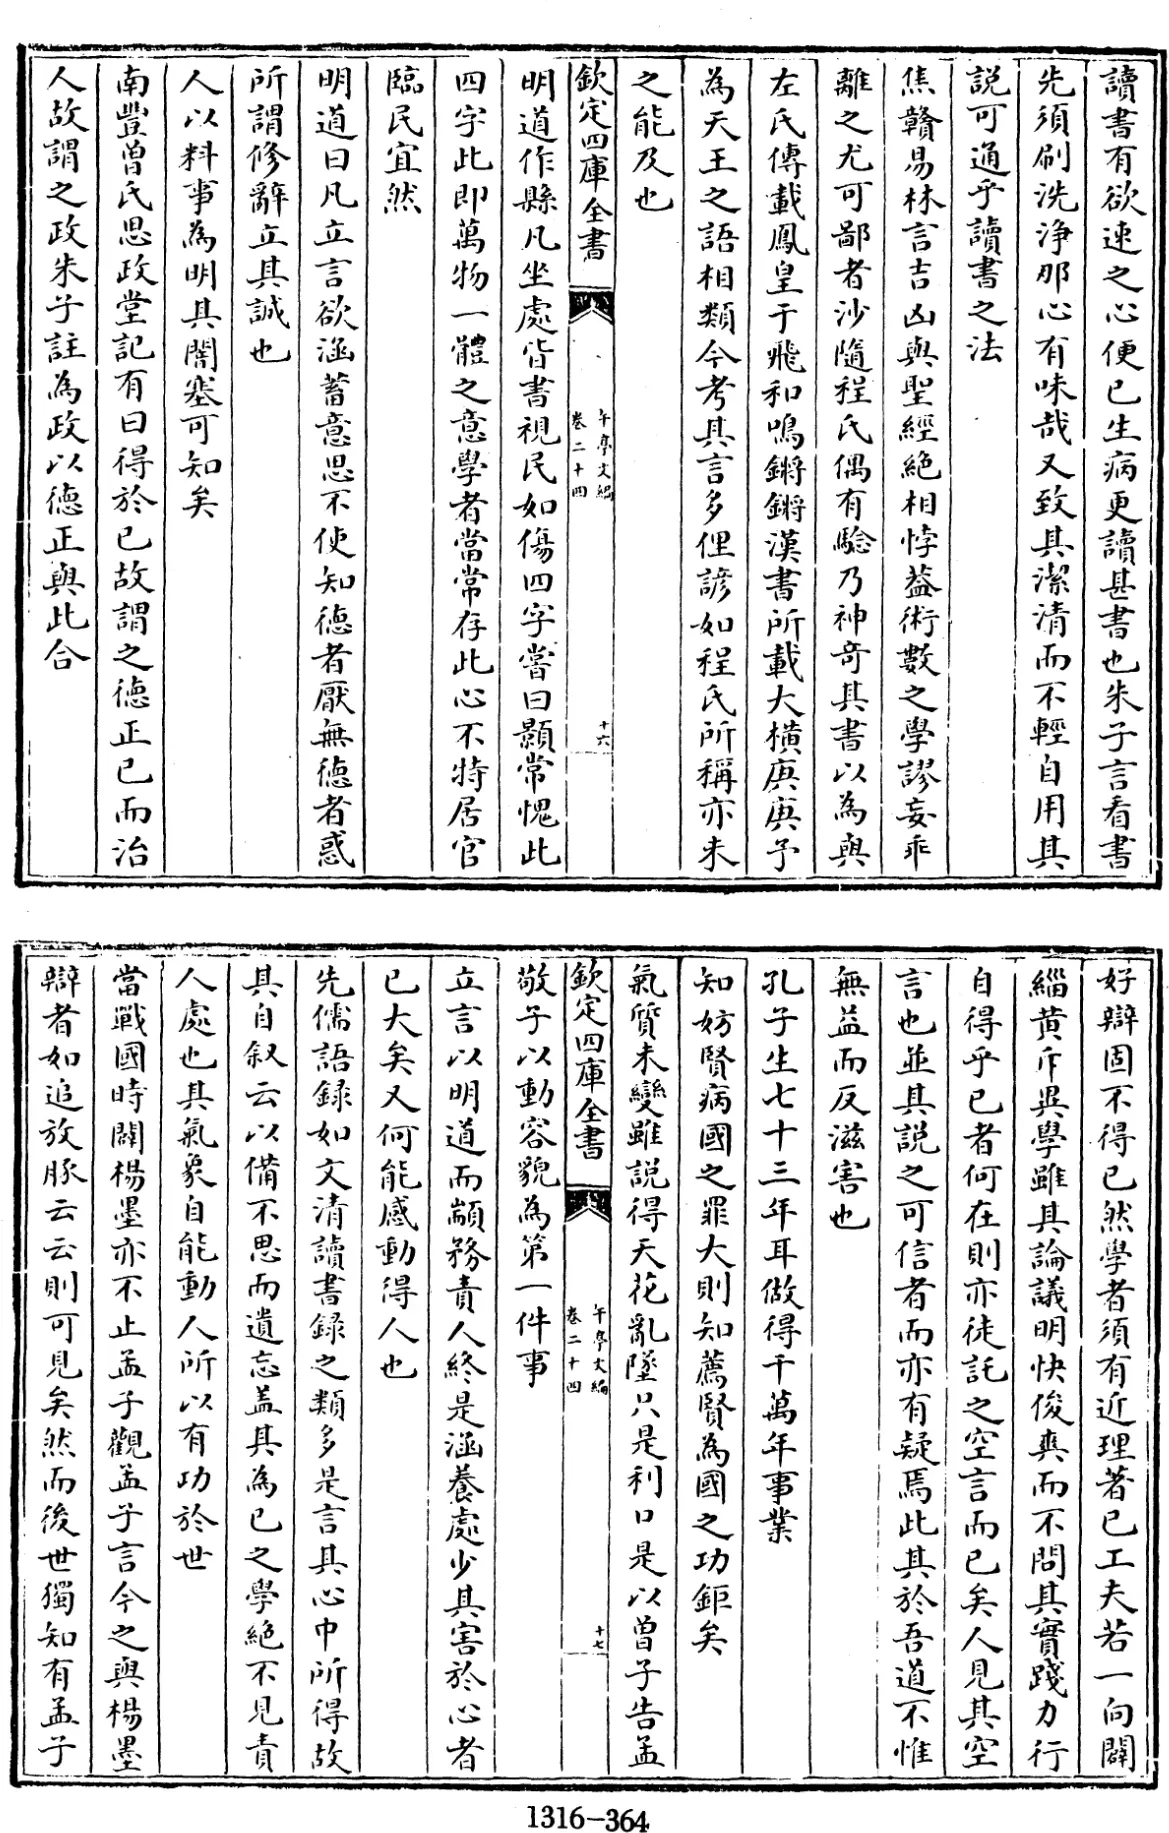 讀書有欲速之心便已生病更讀甚書也朱子言看書
先須刷洗淨那心有味哉又致其潔清而不輕自用其
説可通乎讀書之法
焦贛易林言吉凶與聖經絶相悖葢術數之學謬妄乖
離之尤可鄙者沙隨程氏偶有驗乃神奇其書以為與
左氏傳載鳳皇于飛和鳴鏘鏘漢書所載大横庚庚予
為天王之語相類今考其言多俚諺如程氏所稱亦未
之能及也
欽定四庫全書
午亭文編
卷二十四
十六
明道作縣凡坐處皆書視民如傷四字嘗曰顥常愧此
四字此即萬物一體之意學者當常存此心不特居官
臨民宜然
明道曰凡立言欲涵蓄意思不使知德者厭無德者惑
所謂修辭立其誠也
人以料事為明其闇塞可知矣
南豐曾氏思政堂記有曰得於已故謂之德正已而治
人故謂之政朱子註為政以德正與此合
好辯固不得已然學者須有近理著已工夫若一向闢
緇黄斥異學雖其論議明快俊爽而不問其實踐力行
自得乎已者何在則亦徒託之空言而已矣人見其空
言也並其説之可信者而亦有疑焉此其於吾道不惟
無益而反滋害也
孔子生七十三年耳做得千萬年事業
知妨賢病國之罪大則知薦賢為國之功鉅矣
氣質未變雖説得天花亂墜只是利口是以曾子告孟
欽定四庫全書
午亭文編
卷二十四
十七
敬子以動容貌為第一件事
立言以明道而顓務責人終是涵養處少其害於心者
已大矣又何能感動得人也
先儒語録如文清讀書録之類多是言其心中所得故
其自叙云以備不思而遺忘盖其為已之學絶不見責
人處也其氣象自能動人所以有功於世
當戰國時闢楊墨亦不止孟子觀孟子言今之與楊墨
辯者如追放豚云云則可見矣然而後世獨知有孟子
1316-364